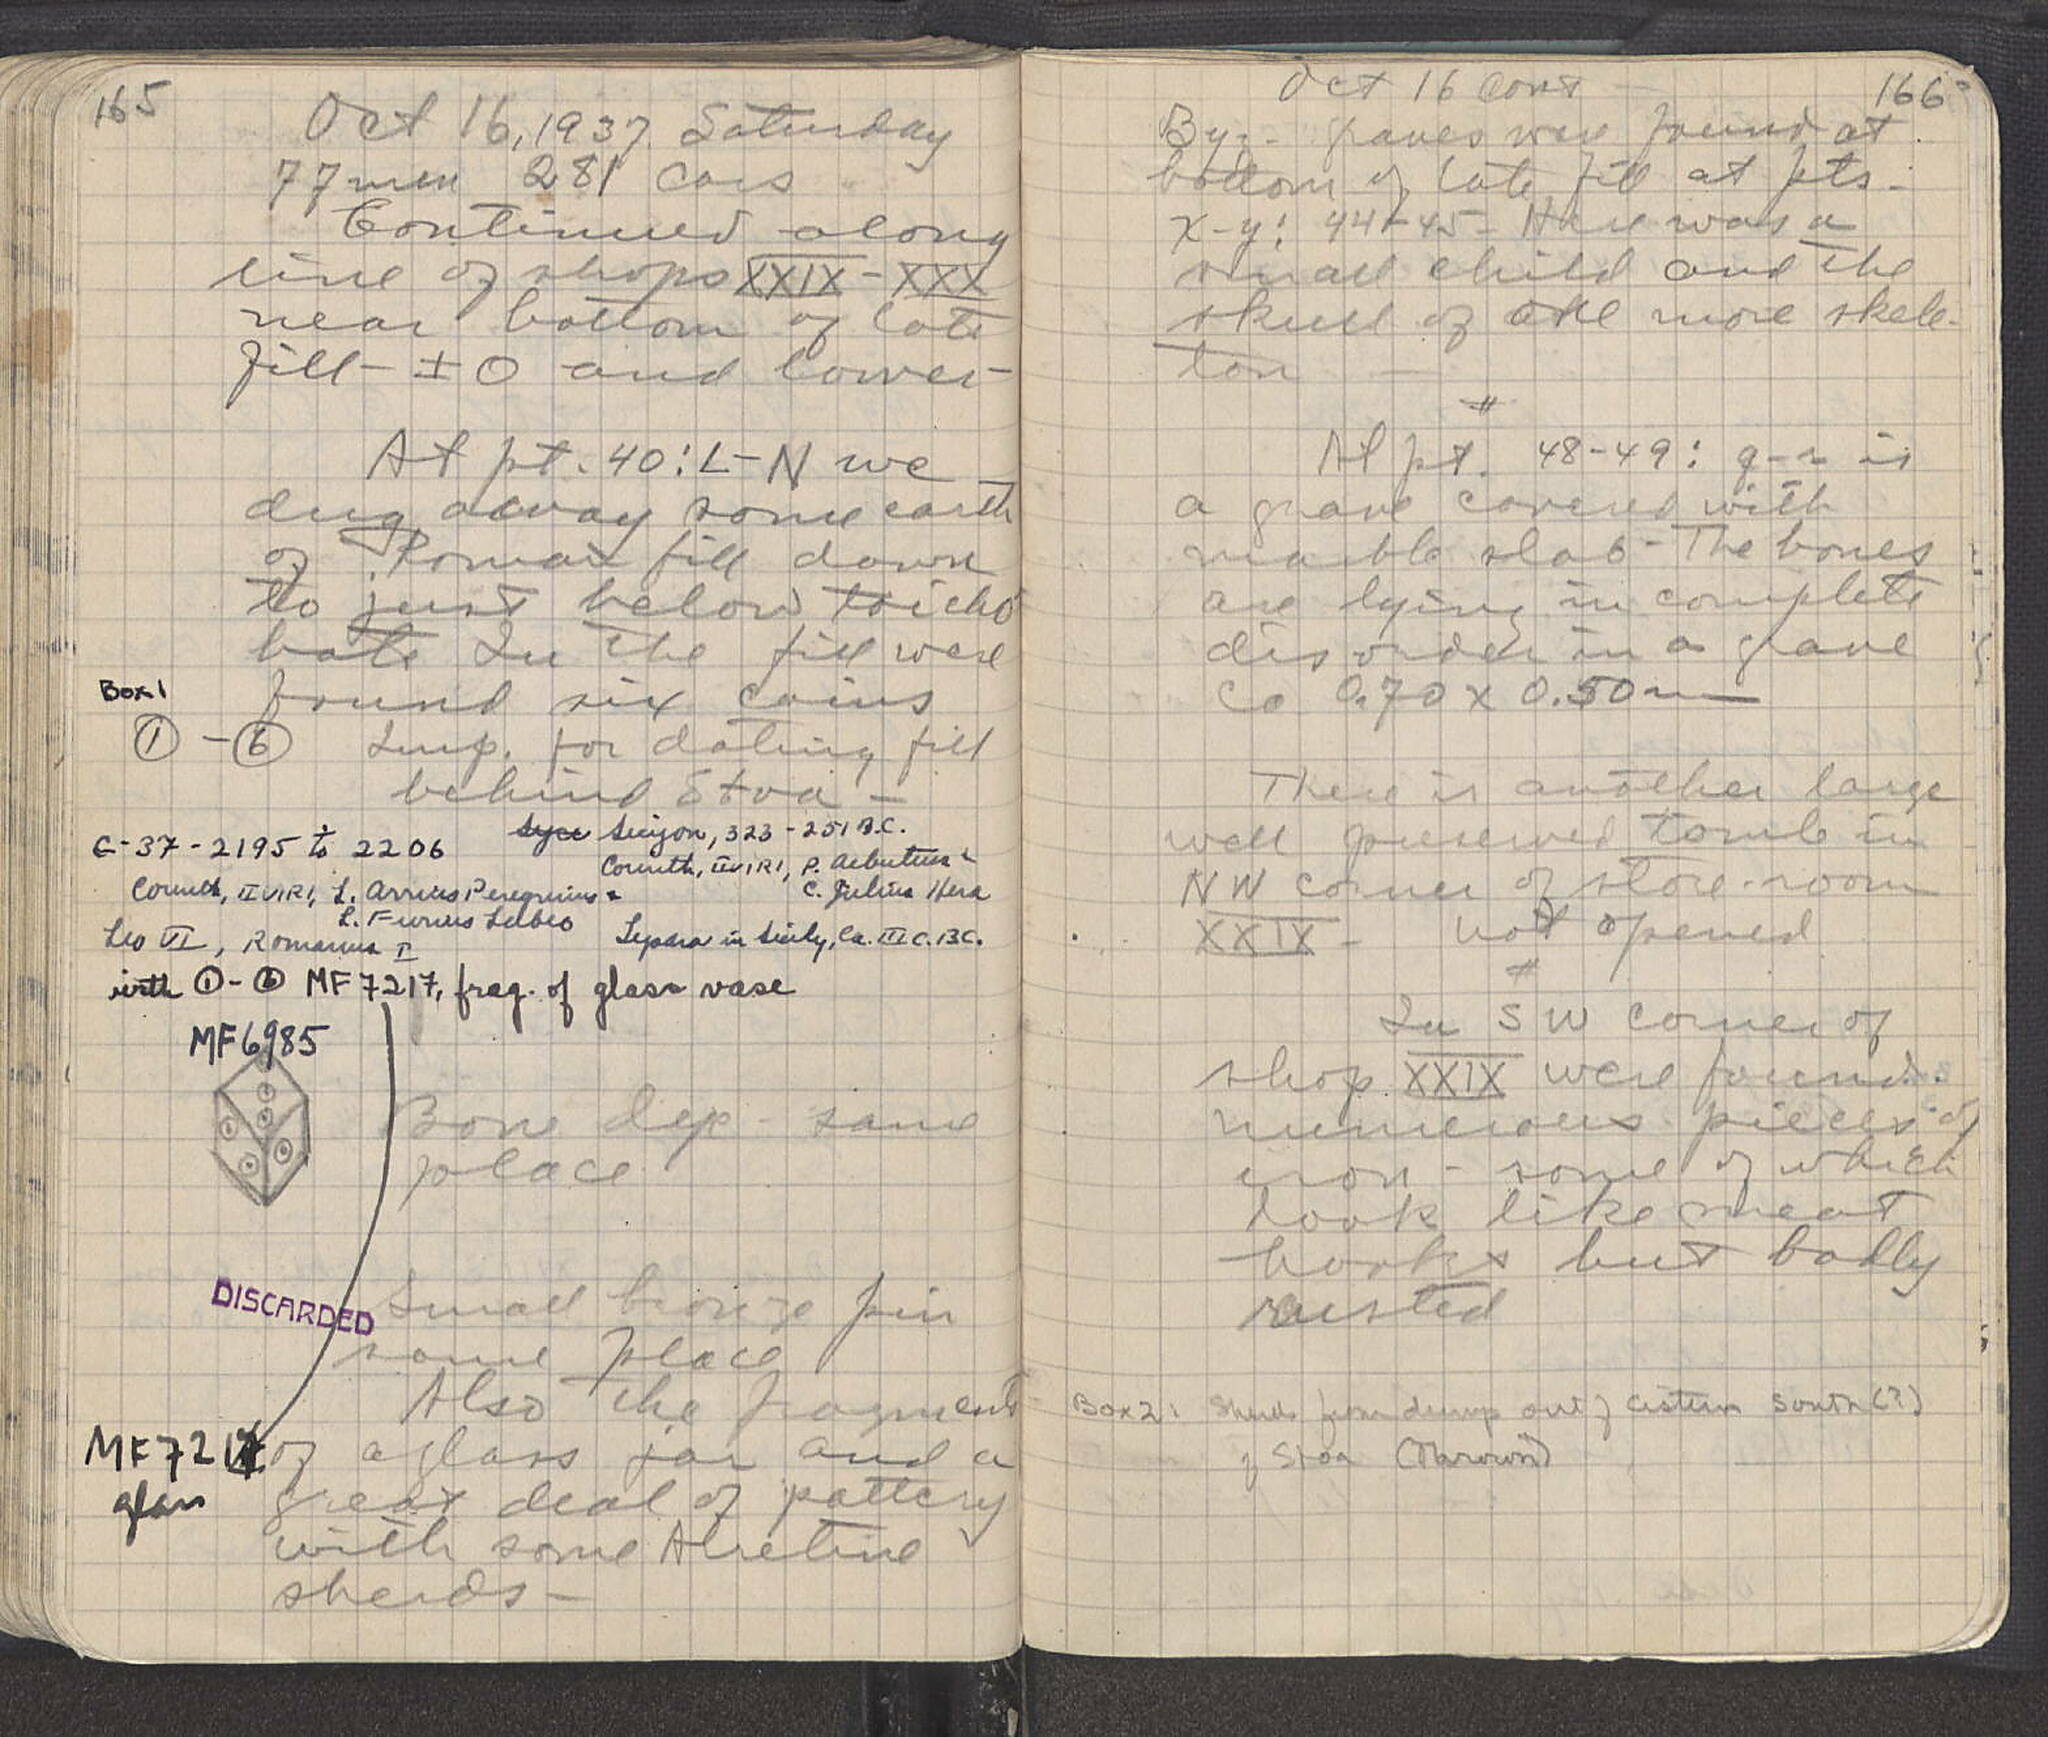 165
Oct 16, 1937 Saturday
77 men 281 cars
Continued along
line of shops XXIX - XXX
near bottom of late
fill - ± 0 and lower -
At pt. 40: L-N we
dug away some earth
of Roman fill down
to just below toicho
bate In the fill were
Box 1
found six coins
① - ⑥ Imp. for dating fill
behind Stoa -
C-37-2195 to 2206
Syce Sicyon, 323 - 251 B.C.
Corinth, IIVIRI, P. Aebutius &
C. Julius Hera
Corinth, IIVIRI, L. Arrius Peregrinus &
L. Furius Labeo
Leo VI, Romanus I
Lipara in Sicily, Ca. III C. B.C.
with ①-⑥ MF 7217, frag. of glass vase
MF 6985
Bone dep - same
place
DISCARDED
Small bronze pin
same place
Also the fragment
MF7217
of a glass jar and a
glass
great deal of pottery
with some Arretine
sherds -
Oct 16 cont
166
Byz - graves were found at
bottom of late fill at pts -
x-y: 44-45 - Here was a
small child and the
skull of one more skele-
ton -
#
At pt. 48-49: q-r is
a grave covered with
marble slab - The bones
are lying in complete
disorder in a grave
ca 0.70 x 0.50 m
There is another large
well preserved tomb in
NW corner of store-room
XXIX - not opened
#
In SW corner of
shop XXIX were found
numerous pieces of
iron - some of which
look like meat
hooks but badly
rusted
Box 2: Sherds from dump out of cistern South (?)
of Stoa (Thrown)